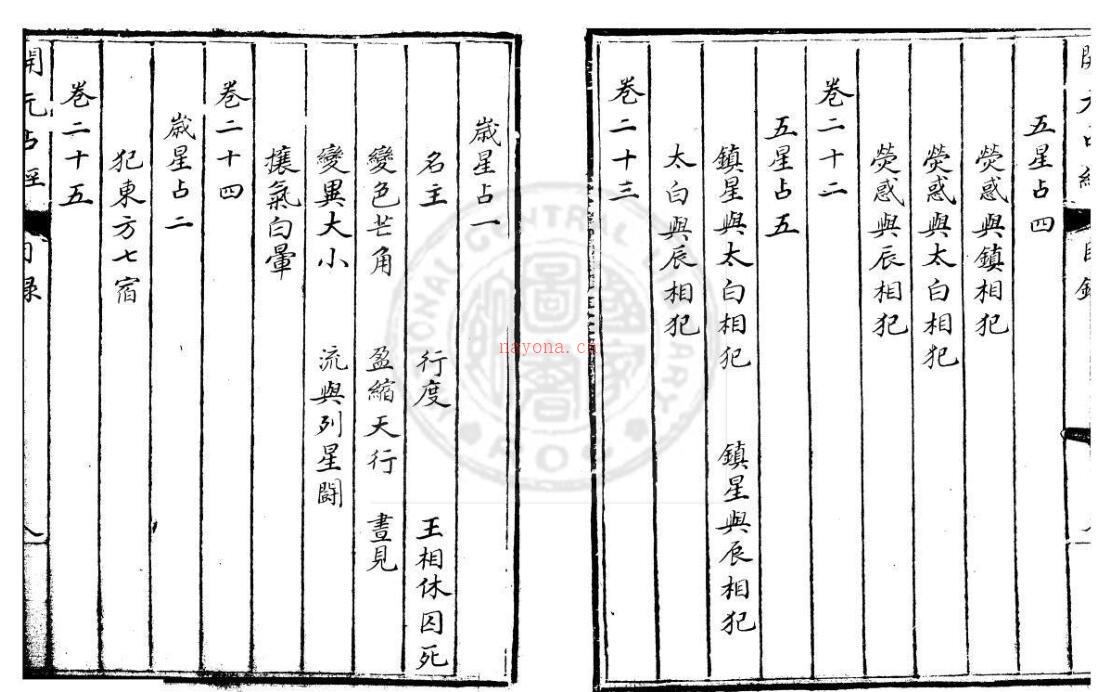 開元占經 目錄
五星占四
熒惑與鎮相犯
熒惑與太白相犯
熒惑與辰相犯
卷二十二
五星占五
鎮星與太白相犯 鎮星與辰相犯
太白與辰相犯
卷二十三
歲星占一
名主 行度 王相休囚死
變色芒角 盈縮天行 晝見
變異大小 流與列星鬪
攘氣白暈
卷二十四
歲星占二
犯東方七宿
卷二十五
開元占經 目錄 八
nayona.cn
NATIONAL CENTRAL LIBRARY